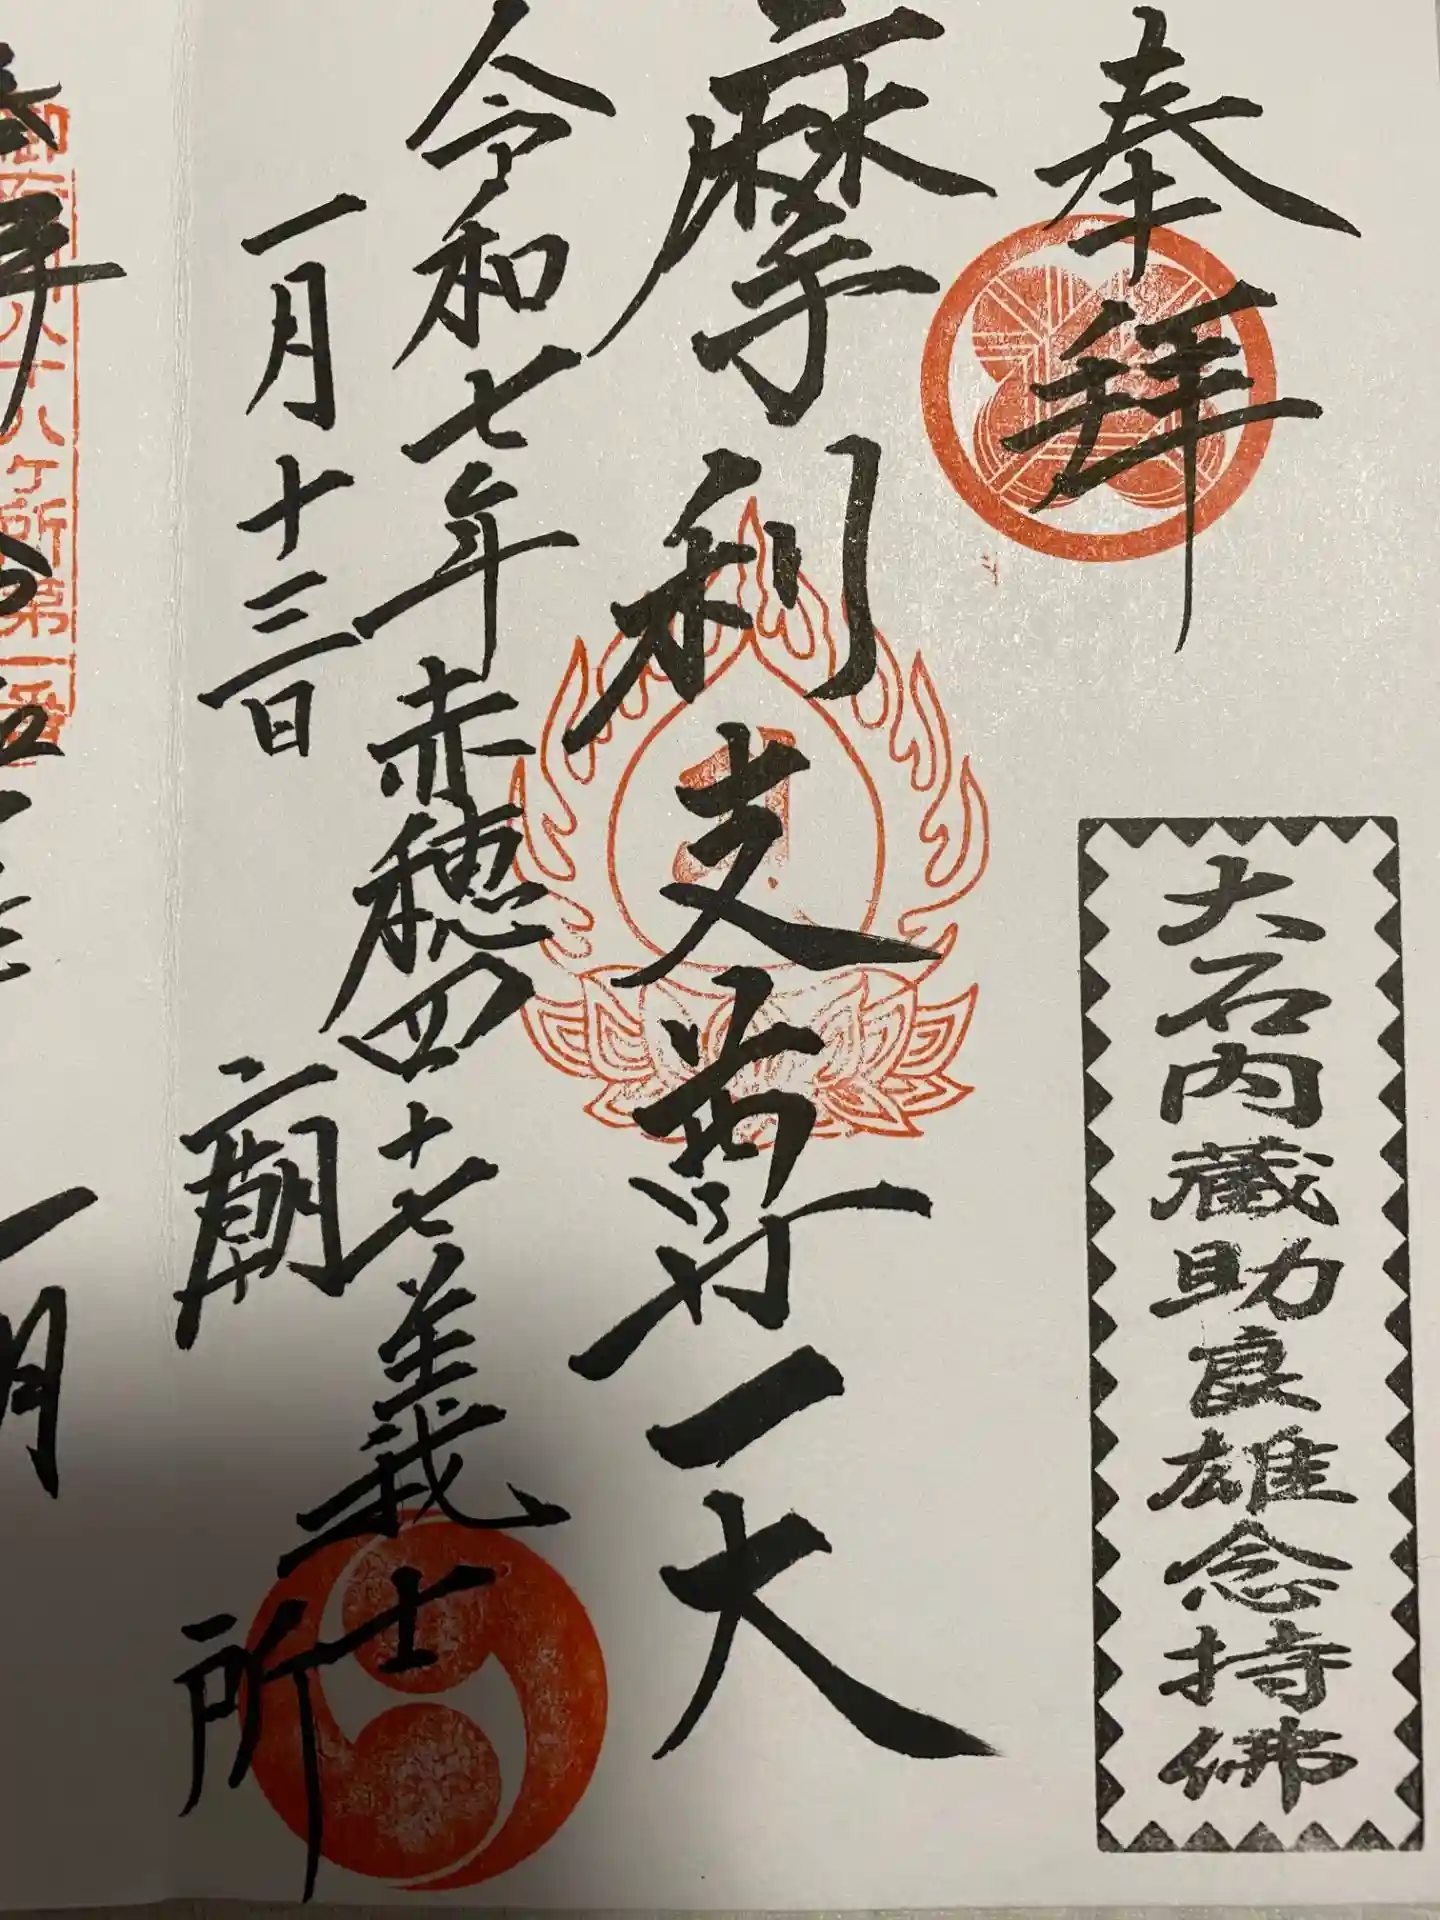 奉拝
大石内蔵助良雄念持佛
摩利支尊一大
令和七年赤穂四十七義士
一月十三日
廟所